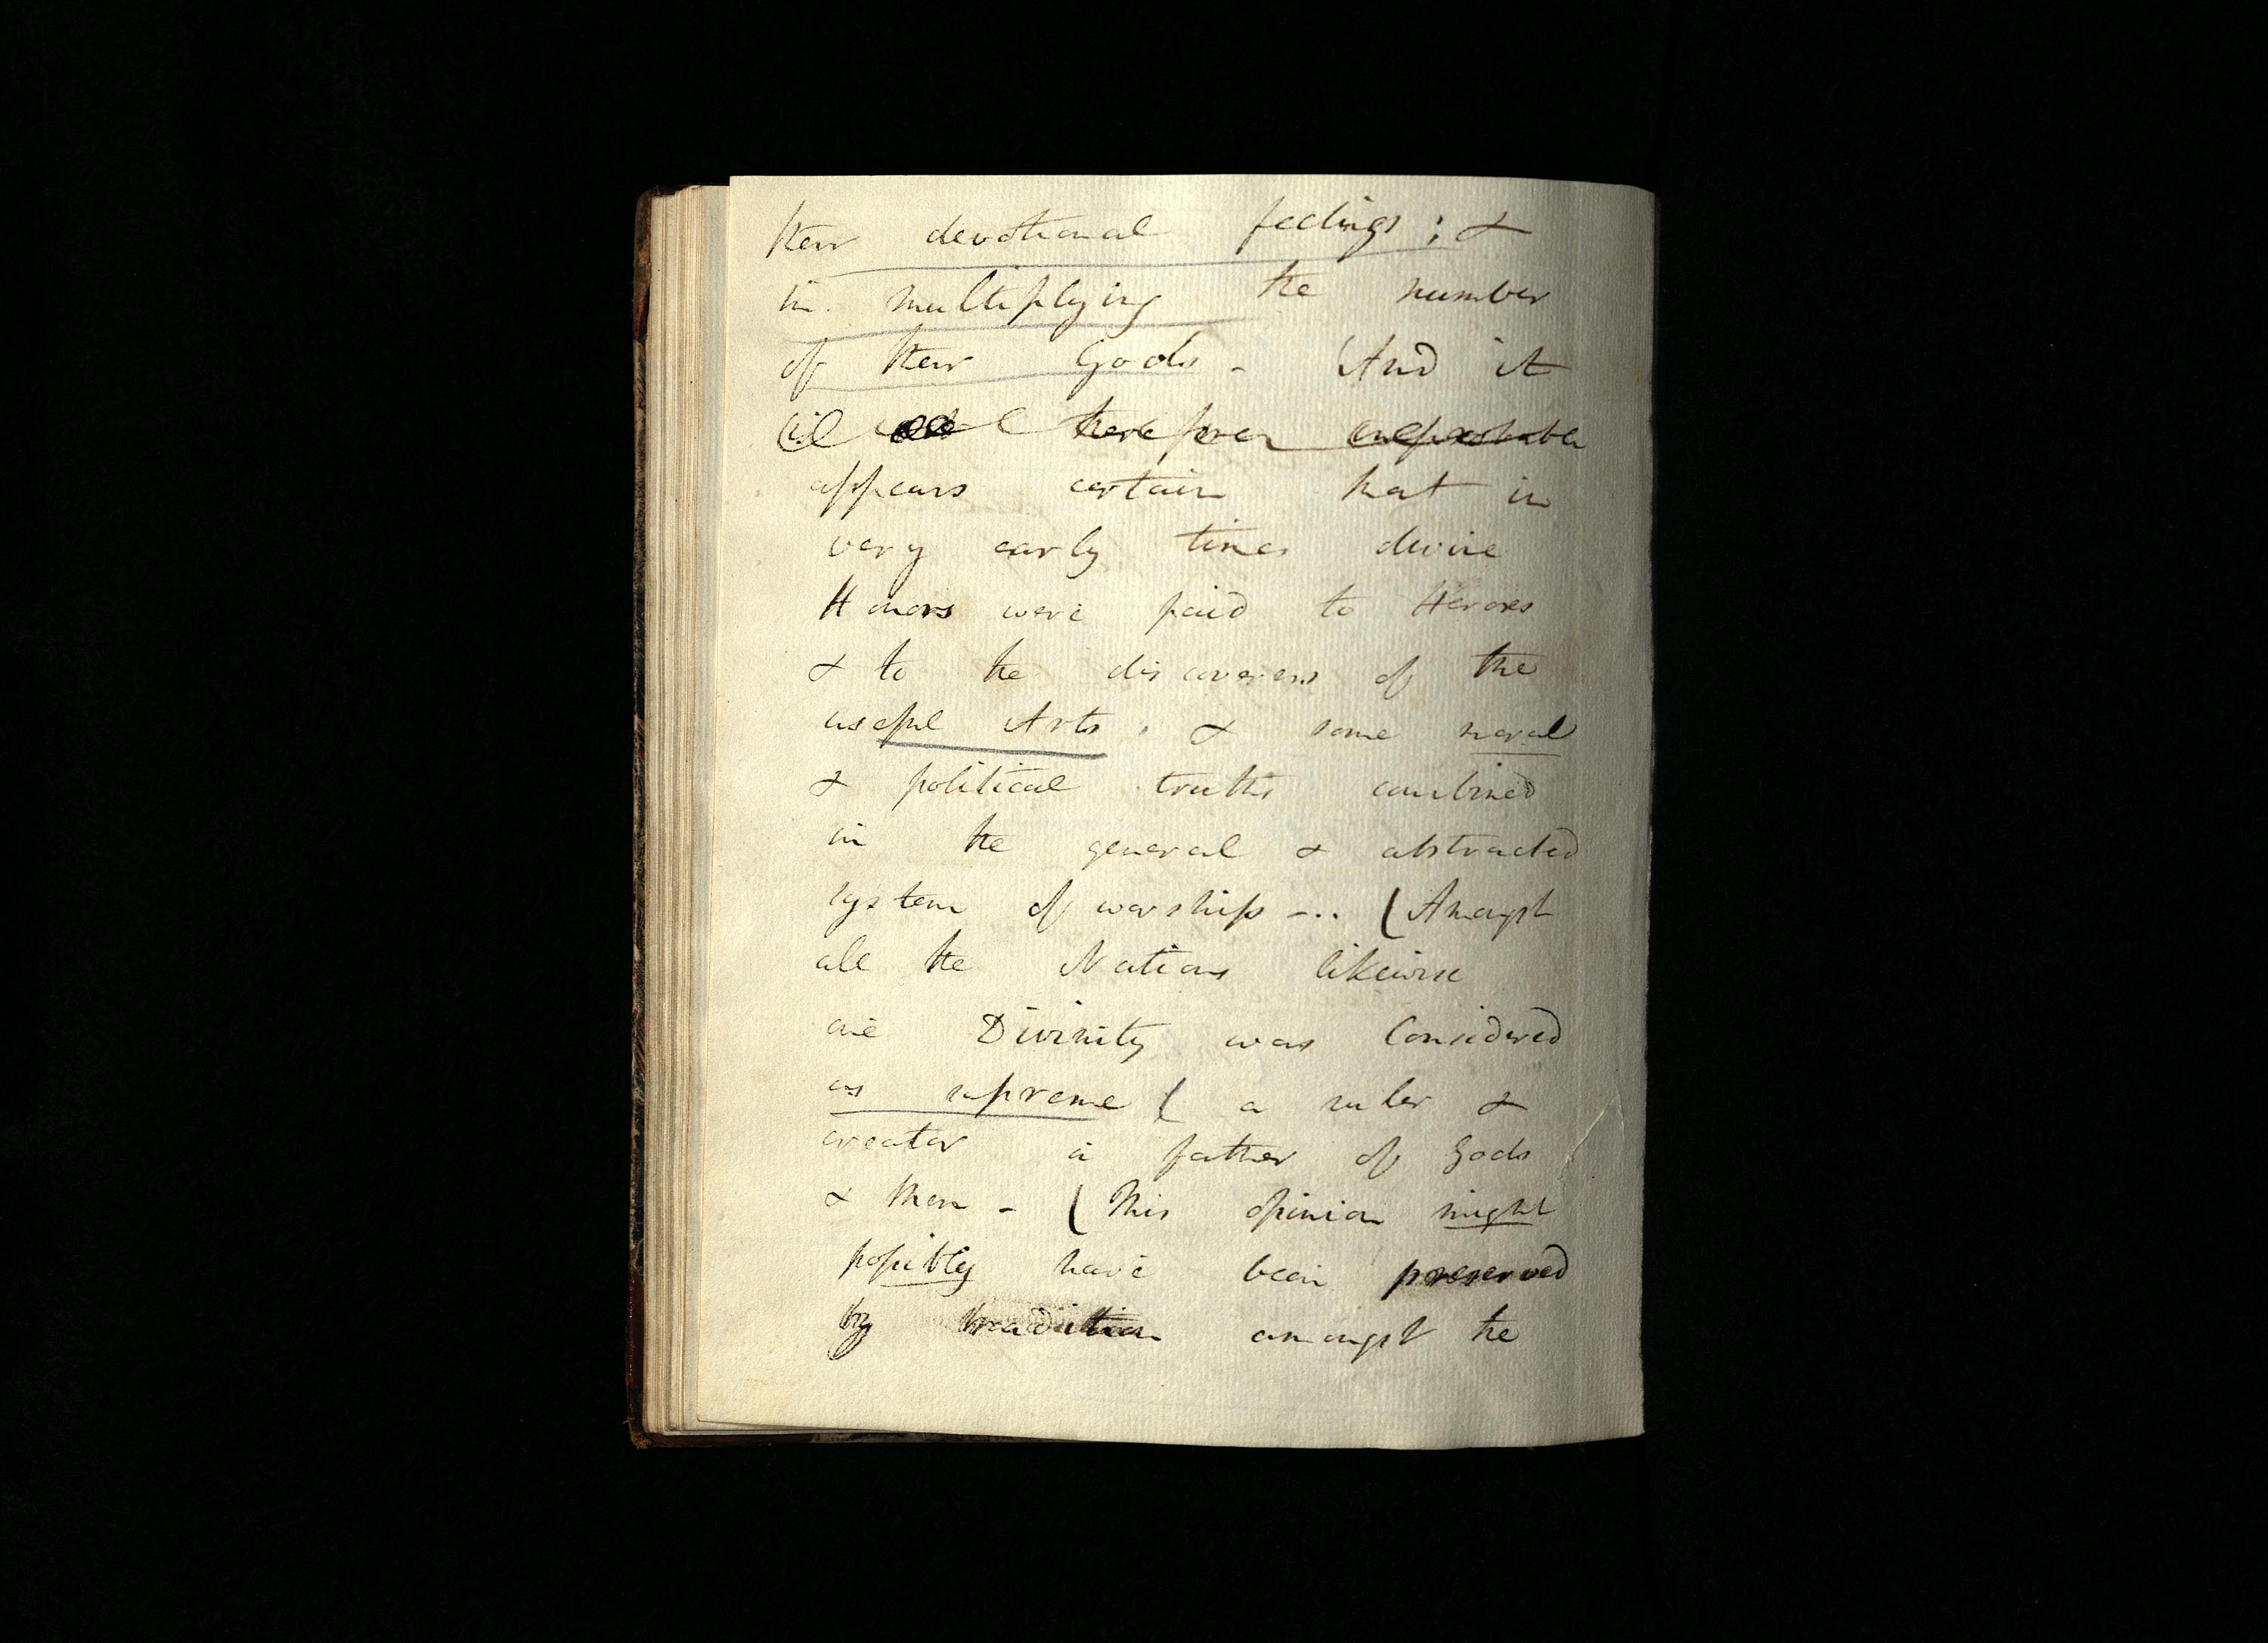 their devotional feelings; &
in multiplying the number
of their Gods - (And it
is not therefore improbable
appears certain that in
very early times divine
Honors were paid to Heroes
& to the discoverers of the
useful Arts. & some moral
& political truths combined
in the general & abstracted
system of worship -.. (Amongst
all the Nations likewise
one Divinity was Considered
as supreme ( a ruler &
creator a father of Gods
& Men - (This opinion might
possibly have been preserved
by tradition amongst the